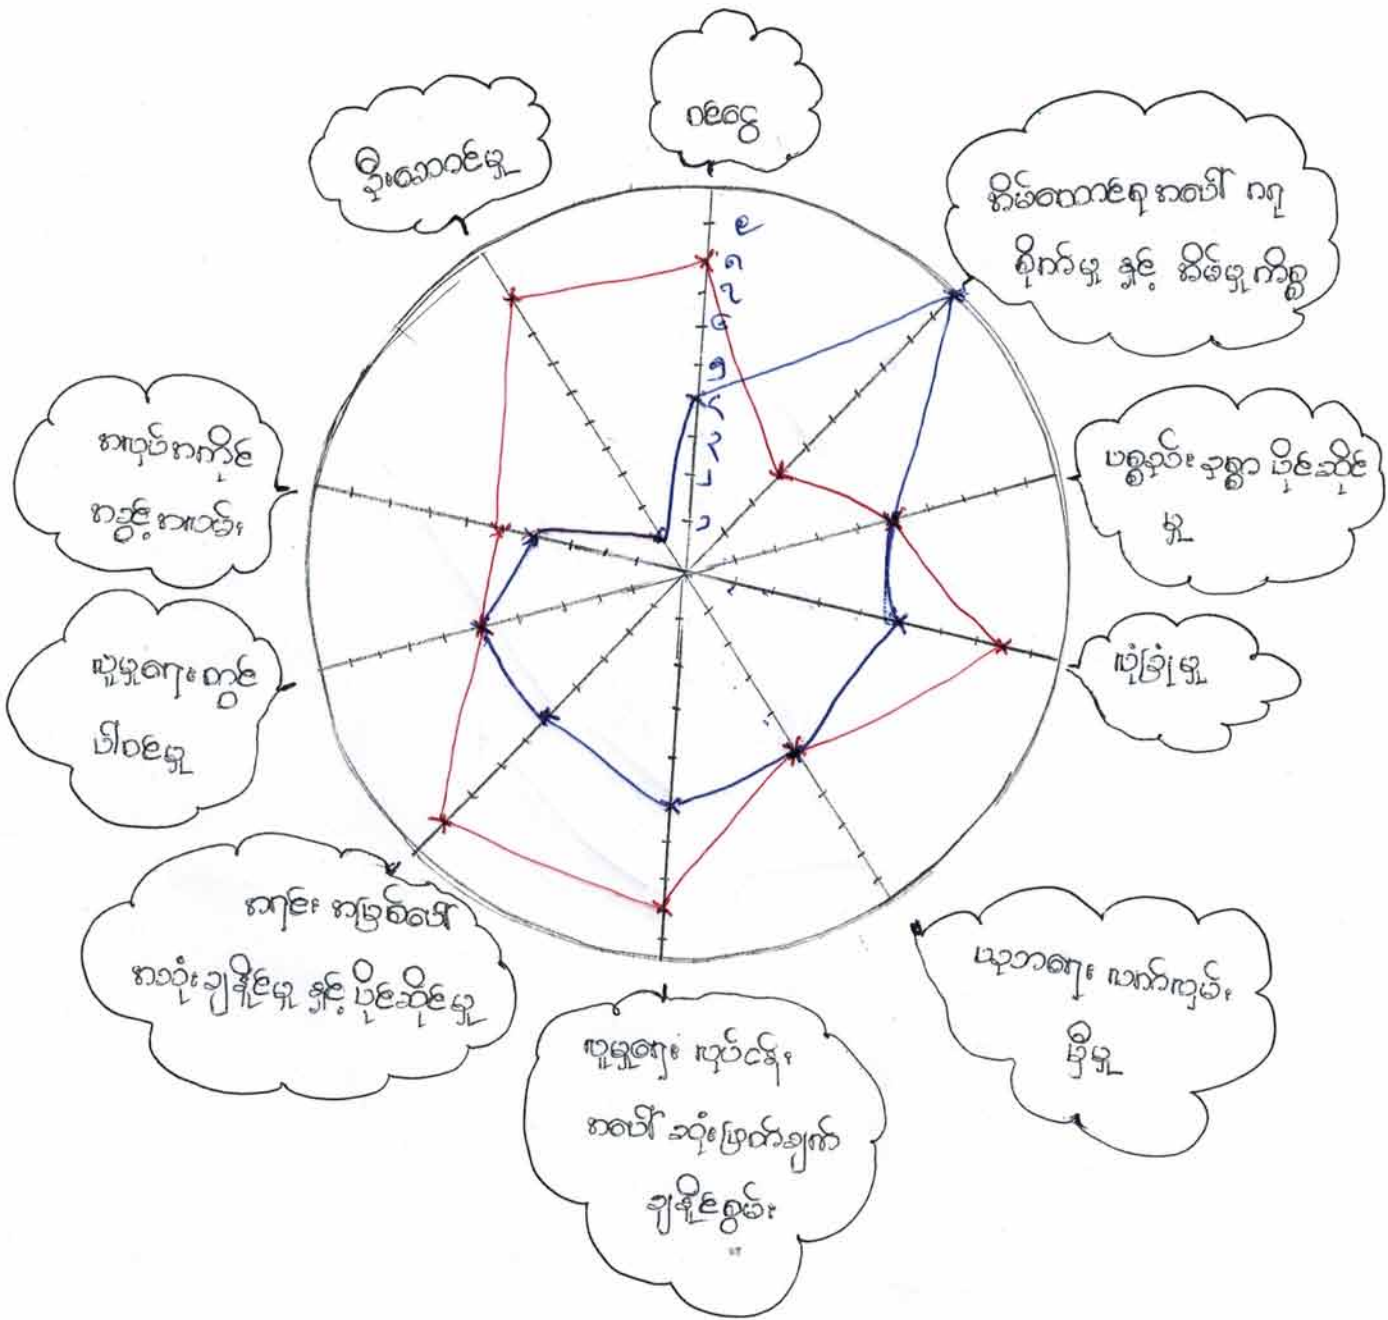 ဝင်ငွေ
အိမ်ထောင်ရေးအပေါ် ဂရု
စိုက်မှု နှင့် အိမ်မှုကိစ္စ
ပစ္စည်းဥစ္စာ ပိုင်ဆိုင်
မှု
လုံခြုံမှု
ပညာရေး လက်လှမ်း
မှီမှု
လူမှုရေး လုပ်ငန်း
အပေါ် ဆုံးဖြတ်ချက်
ချနိုင်စွမ်း
အရင်း အမြစ်ပေါ်
အသုံးချနိုင်မှု နှင့် ပိုင်ဆိုင်မှု
လူမှုရေးတွင်
ပါဝင်မှု
အလုပ်အကိုင်
အခွင့်အလမ်း
ဦးဆောင်မှု
၉
၈
၇
၆
၅
၄
၃
၂
၁